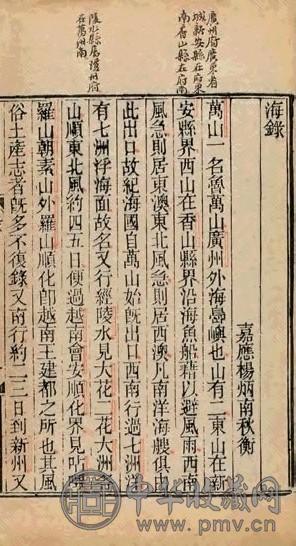 廣州府廣東省
城新安縣在府東
南香山縣在府南
陵水縣屬瓊州府
在萬州南
海錄
嘉應楊炳南秋衡
萬山一名魯萬山廣州外海島嶼也山有二東山在新
安縣界西山在香山縣界沿海魚船藉以避風雨西南
風急則居東澳東北風急則居西澳凡南洋海艘俱由
此出口故紀海國自萬山始既出口西南行過七洲洋
有七洲浮海面故名又行經陵水見大花二花大洲各
山順東北風約四五日便過越南會安順化界見呫嗶
羅山朝素山外羅山順化即越南王建都之所也其風
俗土產志者既多不復錄又南行約二三日到新州又
中华收藏网
www.pmv.cn